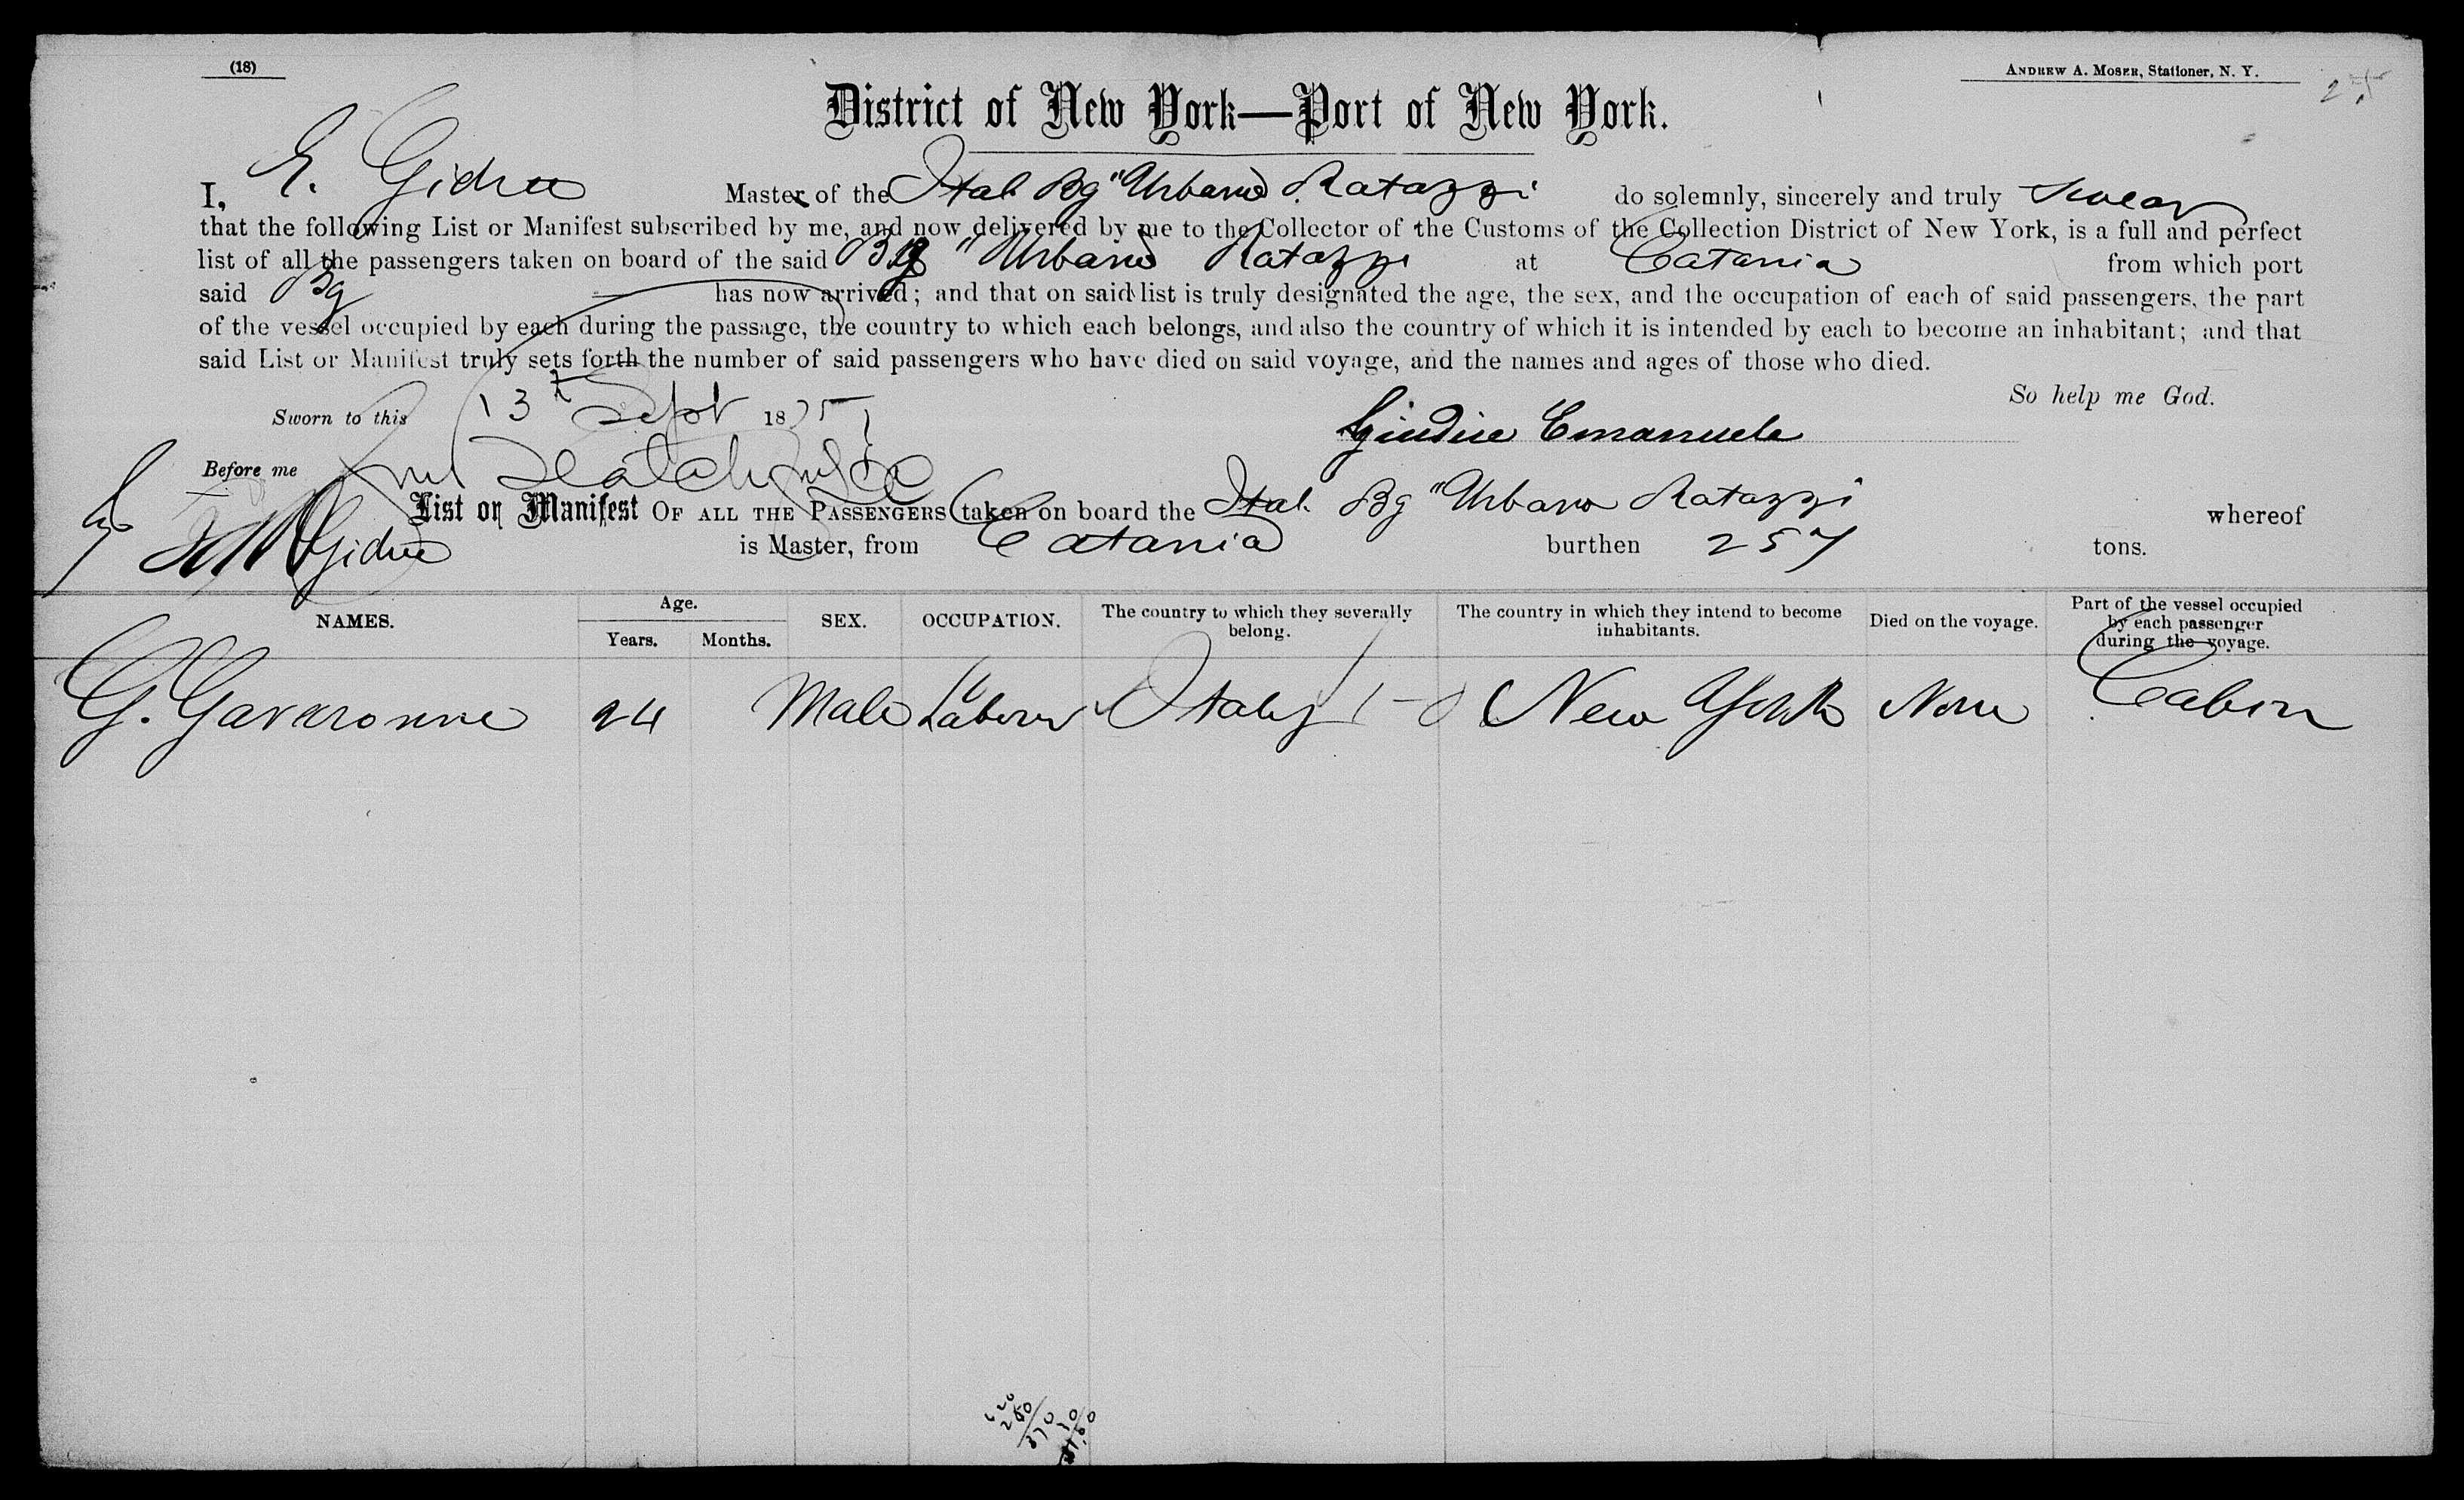 (18)
ANDREW A. MOSER, Stationer, N. Y.
District of New York—Port of New York.
I, E. Gidree Master of the Ital Bg "Urbano Ratazzi do solemnly, sincerely and truly swear
that the following List or Manifest subscribed by me, and now delivered by me to the Collector of the Customs of the Collection District of New York, is a full and perfect
list of all the passengers taken on board of the said Bg "Urbano Ratazzi at Catania from which port
said Bg has now arrived; and that on said list is truly designated the age, the sex, and the occupation of each of said passengers, the part
of the vessel occupied by each during the passage, the country to which each belongs, and also the country of which it is intended by each to become an inhabitant; and that
said List or Manifest truly sets forth the number of said passengers who have died on said voyage, and the names and ages of those who died.
So help me God.
Sworn to this 13 Sept 1875
Giudice Emanuele
Before me
List or Manifest OF ALL THE PASSENGERS taken on board the Ital. Bg "Urbano Ratazzi whereof
Gidree is Master, from Catania burthen 257 tons.
NAMES. Age. Years. Months. SEX. OCCUPATION. The country to which they severally belong. The country in which they intend to become inhabitants. Died on the voyage. Part of the vessel occupied by each passenger during the voyage.
G. Gavaronne 24 Male Laborer Italy New York None Cabin